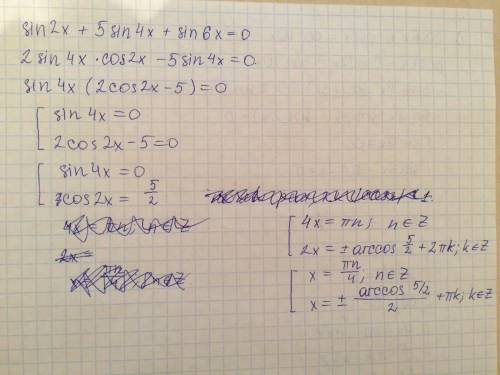 sin2x + 5sin4x + sin6x = 0
2sin4x · cos2x - 5sin4x = 0
sin4x (2cos2x - 5) = 0
sin4x = 0
2cos2x - 5 = 0
sin4x = 0
cos2x = 5/2
2x =
4x = πn; n ∈ Z
2x = ± arccos 5/2 + 2πk; k ∈ Z
x = πn/4; n ∈ Z
x = ± arccos 5/2 / 2 + πk; k ∈ Z